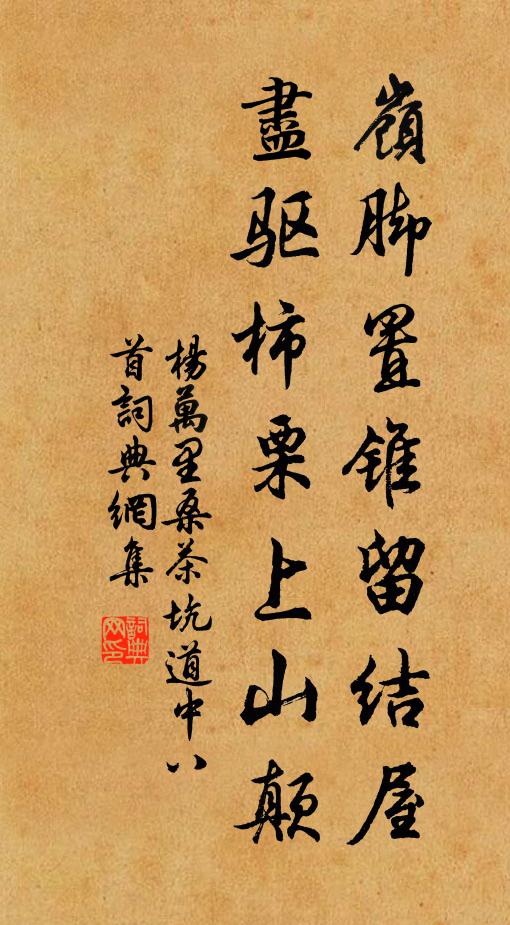 嶺脚置錐留结屋
盡驱柿栗上山颠
楊萬里桑茶坑道中八
首詞典網集
詞典
网印